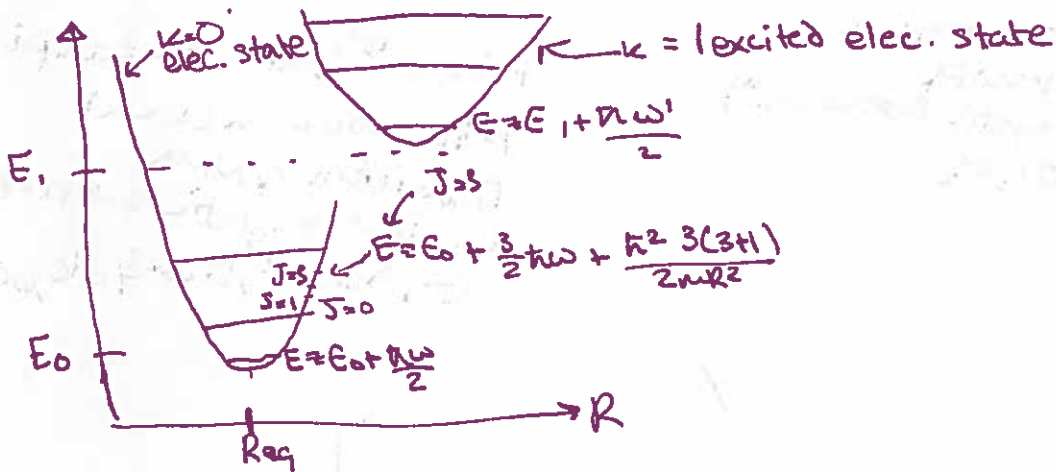 K=0
elec. state
K = 1 excited elec. state
E = E₁ + ħω'/2
E₁
J=3
E = E₀ + 3/2 ħω + ħ² 3(3+1)/2mR²
J=3
J=1
J=0
E₀
E = E₀ + ħω/2
R
Req